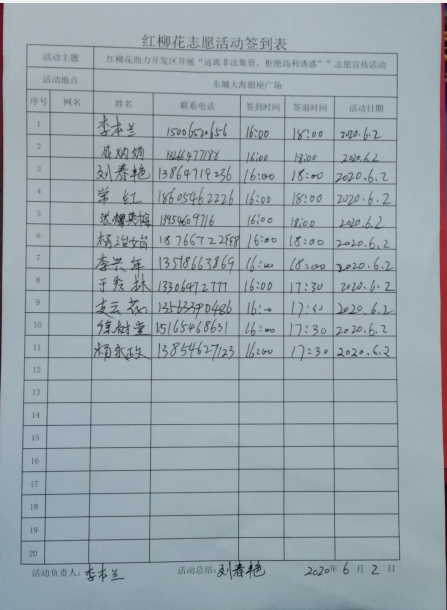 红柳花志愿活动签到表
活动主题 红柳花助力开发区开展“远离非法集资，拒绝高利诱惑””志愿宣传活动
活动地点 东城大海银座广场
序号 网名 姓名 联系电话 签到时间 签退时间 活动日期
1 李本兰 15006520656 16:00 18:00 2020.6.2
2 16:00 18:00 2020.6.2
3 刘春艳 13864719236 16:00 18:00 2020.6.2
4 常红 18605462226 16:00 18:00 2020.6.2
5 16:00 18:00 2020.6.2
6 16:00 18:00 2020.6.2
7 李兴年 13518663869 16:00 18:00 2020.6.2
8 13306472777 16:00 17:30 2020.6.2
9 16:00 17:30 2020.6.2
10 徐树堂 15165468631 16:00 17:30 2020.6.2
11 13854627123 16:00 17:30 2020.6.2
12
13
14
15
16
17
18
19
20
活动负责人：李本兰 活动总结：刘春艳 2020年 6 月 2 日